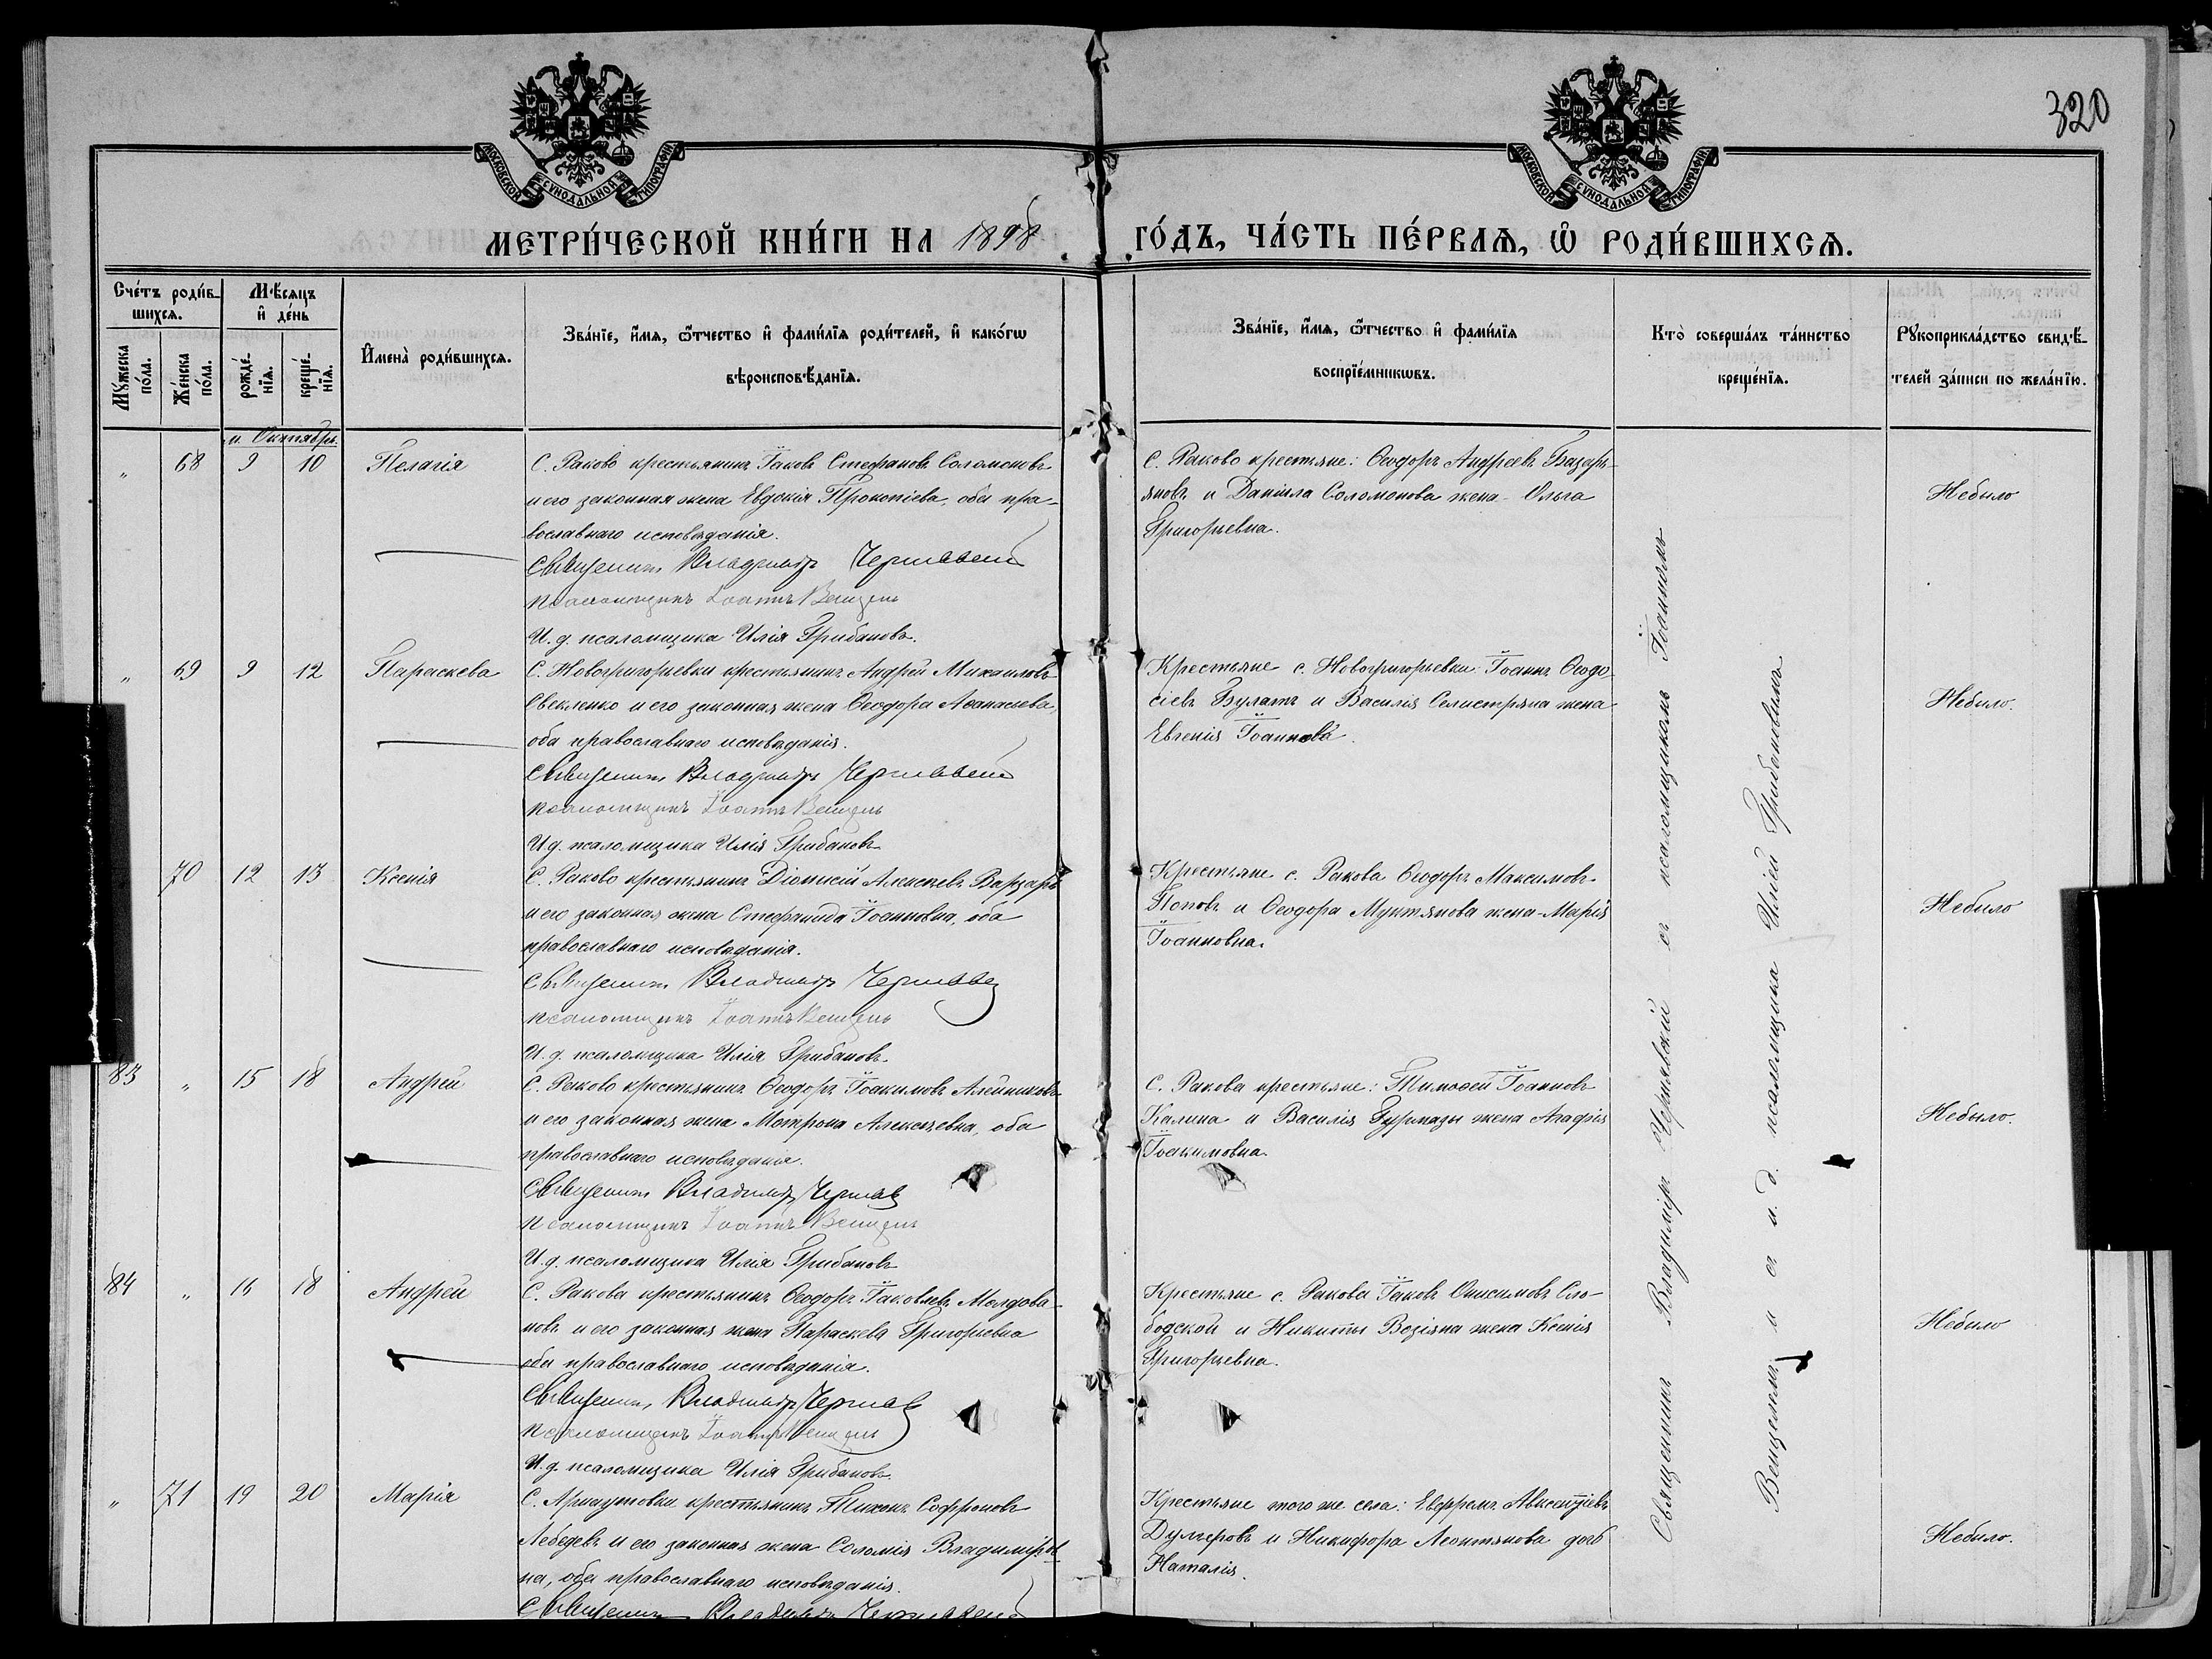 320
МОСКОВСКОЙ СУНОДАЛЬНОЙ ТИПОГРАФІИ
МОСКОВСКОЙ СУНОДАЛЬНОЙ ТИПОГРАФІИ
МЕТРИ́ЧЕСКОЙ КНИ́ГИ НА 1898 ГО́ДЪ, ЧА́СТЬ ПЕ́РВАѦ, Ѡ҆ РОДИ́ВШИХСѦ.
Сче́тъ роди́в-
шихсѧ.
Мꙋ́жеска по́ла.
Же́нска по́ла.
Мѣ́сѧцъ
и҆ де́нь
рожде́-
нїѧ.
креще́-
нїѧ.
И҆мена̀ роди́вшихсѧ.
Зва́нїе, и҆́мѧ, ѻ҆́тчество и҆ фами́лїѧ роди́телей, и҆ како́гѡ
вѣроисповѣ́данїѧ.
Зва́нїе, и҆́мѧ, ѻ҆́тчество и҆ фами́лїѧ
воспрїе́мникѡвъ.
Кто̀ соверша́лъ та́инство
креще́нїѧ.
Рꙋкоприкла́дство свидѣ́-
телей за́писи по жела́нїю.
м. Октябрь.
„ 68 9 10 Пелагія
С. Раково крестьянинъ Іаковъ Стефановъ Соломоновъ
и его законная жена Евдокія Прокопіева, оба пра-
вославнаго исповѣданія.
Священникъ Владиміръ
псаломщикъ Іоаннъ Венцель
И. д. псаломщика Илія Грибановъ.
С. Раково крестьяне: Ѳеодоръ Андреевъ Базарь-
яновъ и Даніила Соломонова жена Ольга
Григорьевна.
Небыло
„ 69 9 12 Параскева
С. Новогригорьевки крестьянинъ Андрей Михаиловъ
Свекленко и его законная жена Ѳеодора Аѳанасіева,
оба православнаго исповѣданія.
Священникъ Владиміръ
псаломщикъ Іоаннъ Венцель
И. д. псаломщика Илія Грибановъ
Крестьяне с. Новогригорьевки: Іоаннъ Ѳеодо-
сіевъ Булатъ и Василія Селистряна жена
Евгенія Іоаннова.
Небыло.
70 12 13 Ксенія
С. Раково крестьянинъ Діонисій Алексѣевъ Варзарь
и его законная жена Стефанида Іоанновна, оба
православнаго исповѣданія.
Священникъ Владиміръ
псаломщикъ Іоаннъ Венцель
И. д. псаломщика Илія Грибановъ.
Крестьяне с. Ракова Ѳеодоръ Максимовъ
Поповъ и Ѳеодора Мунтянова жена Марія
Іоанновна.
Небыло
83 „ 15 18 Андрей
С. Раково крестьянинъ Ѳеодоръ Іоакимовъ Алейниковъ
и его законная жена Мотрона Алексѣевна, оба
православнаго исповѣданія.
Священникъ Владиміръ
псаломщикъ Іоаннъ Венцель
И. д. псаломщика Илія Грибановъ
С. Ракова крестьяне: Тимоѳей Іоанновъ
Калина и Василія Гурмазы жена Агафія
Іоакимовна.
Небыло.
84 „ 16 18 Андрей
С. Ракова крестьянинъ Ѳеодоръ Іаковлевъ Молдова-
новъ и его законная жена Параскева Григорьевна
оба православнаго исповѣданія.
Священникъ Владиміръ
псаломщикъ Іоаннъ Венцель
И. д. псаломщика Илія Грибановъ.
Крестьяне с. Ракова Іаковъ Онисимовъ Сло-
бодской и Никиты Возіяна жена Ксенія
Григорьевна.
Небыло
„ 71 19 20 Марія
С. Арнаутовки крестьянинъ Тихонъ Софроновъ
Лебедевъ и его законная жена Соломія Владиміров-
на, оба православнаго исповѣданія.
Священникъ Владиміръ
Крестьяне того же села: Евфремъ Авксентіевъ
Дулгеровъ и Никифора Леонтянова дочь
Наталія.
Небыло.
Священникъ Владиміръ Чернявскій съ псаломщикомъ Іоанномъ
Венцелемъ и съ и. д. псаломщика Иліей Грибановымъ